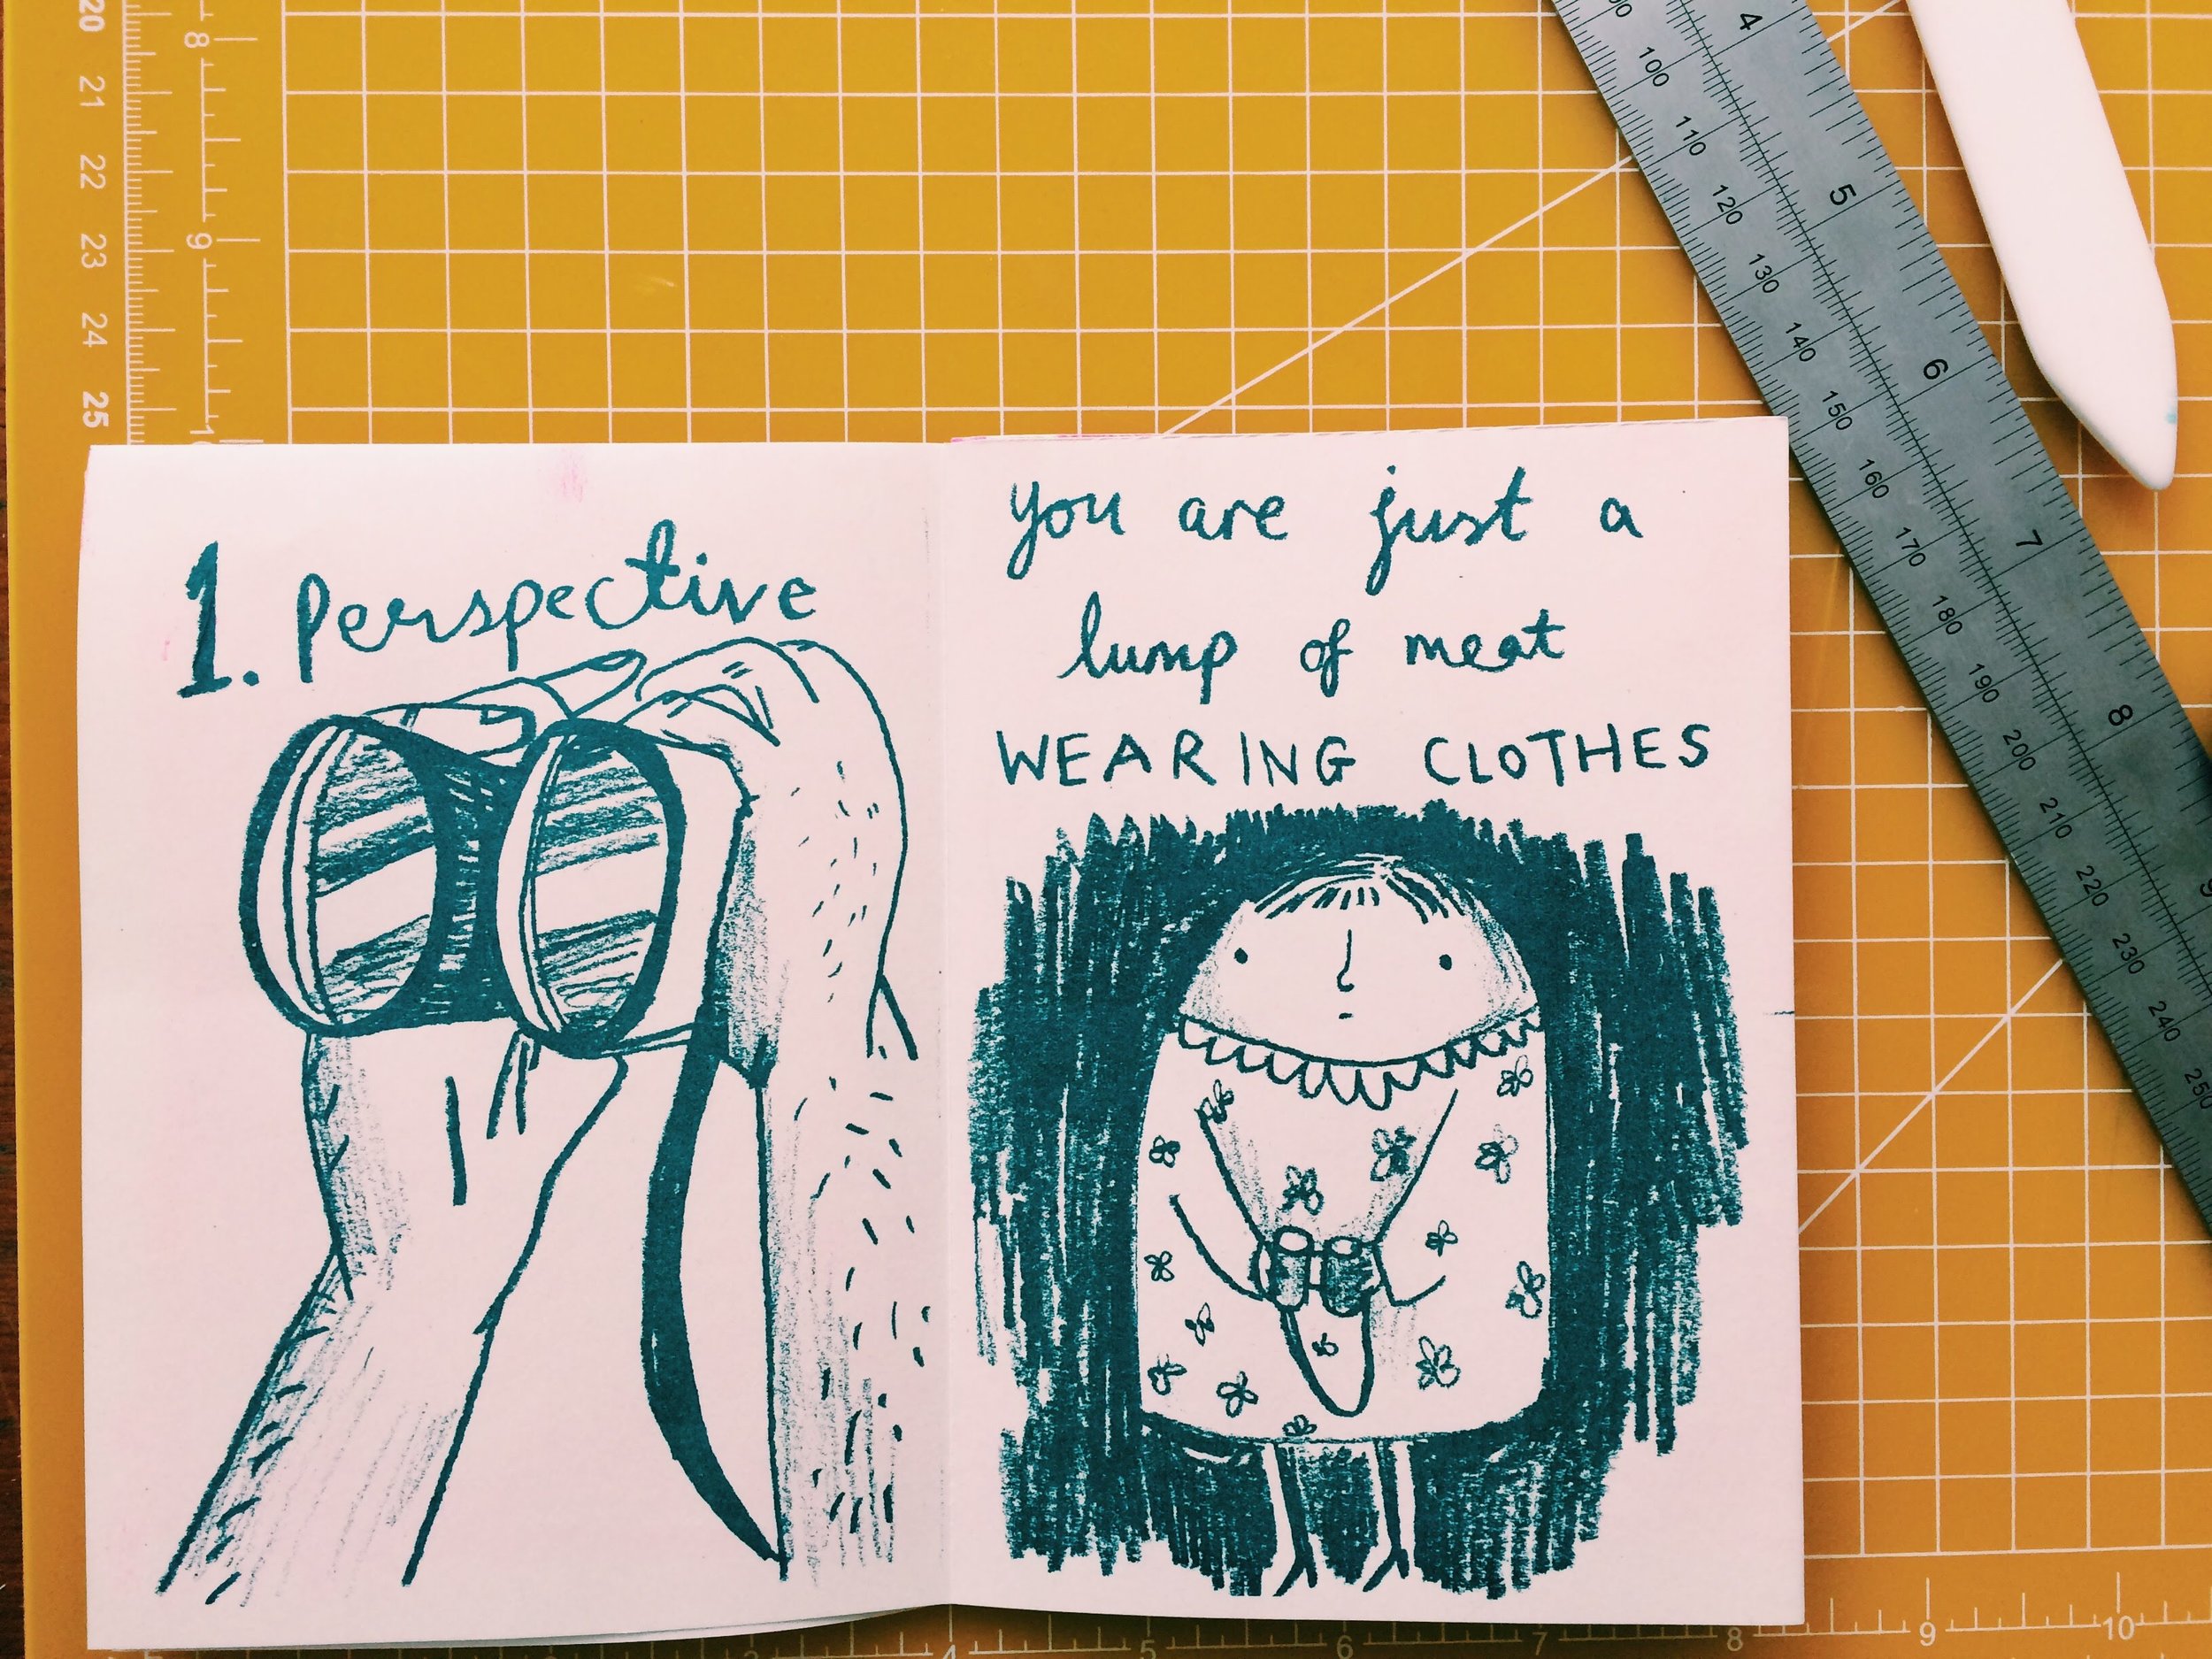 1. Perspective
you are just a
lump of meat
WEARING CLOTHES
20
21
22
23
24
25
8
9
4
5
6
7
8
100
110
120
130
140
150
160
170
180
190
200
210
220
230
240
250
4
5
6
7
8
9
10